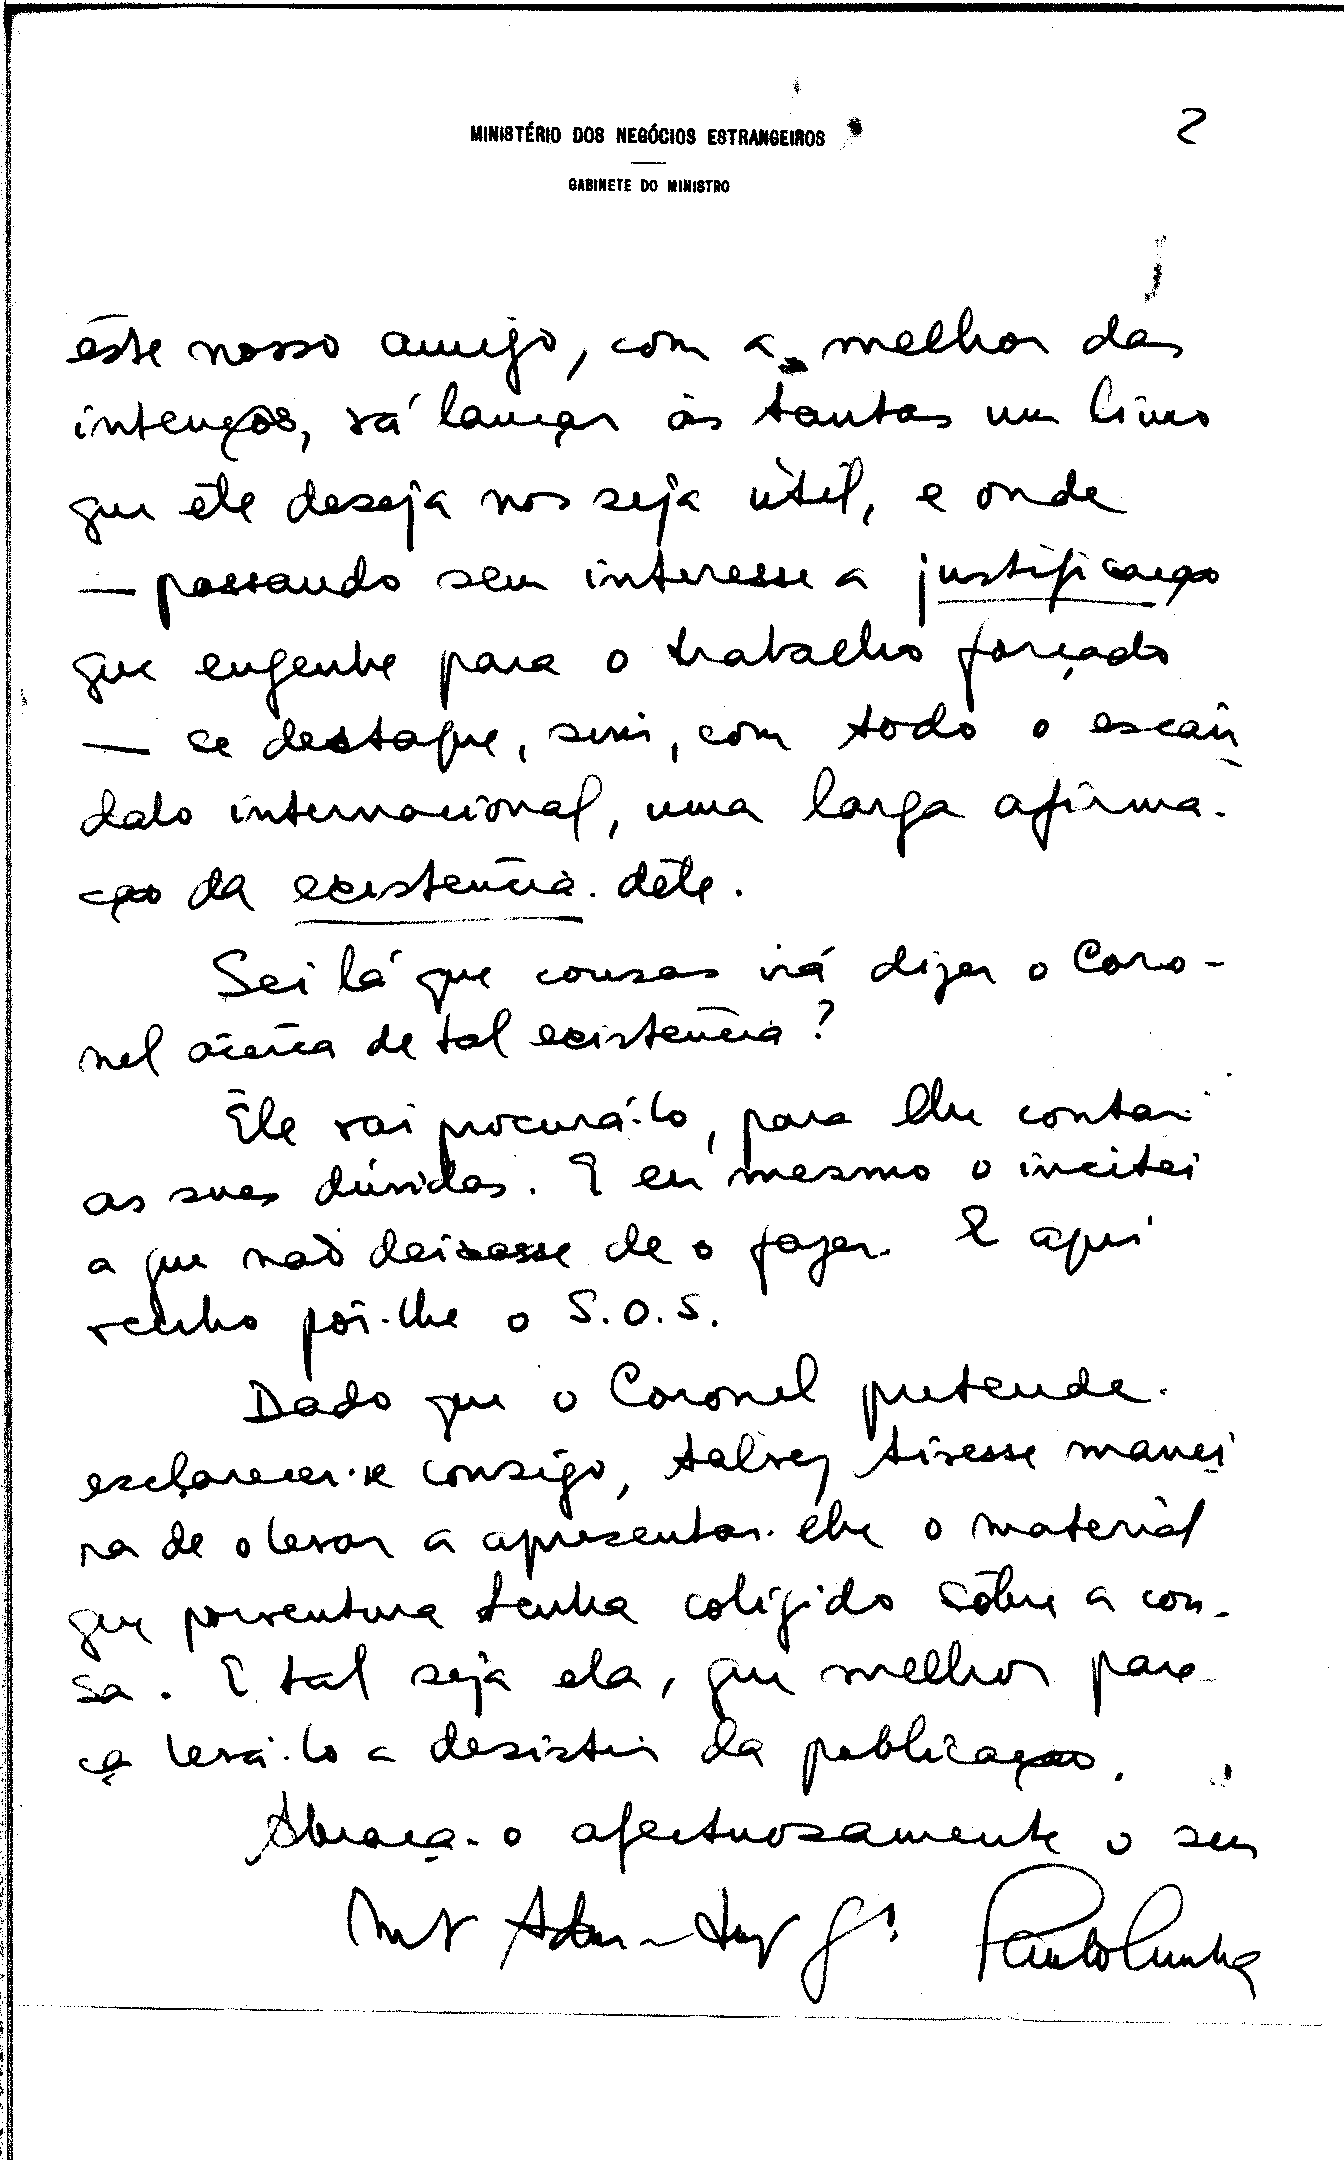 MINISTÉRIO DOS NEGÓCIOS ESTRANGEIROS
GABINETE DO MINISTRO
2
êste nosso amigo, com a melhor das
intenções, vá lançar às tantas um livro
que êle deseja nos seja útil, e onde
— passando sem interesse a justificação
que engenhe para o trabalho forçado
— se destaque, sim, com todo o escân
dalo internacional, uma larga afirma-
ção da existência dêle.
Sei lá que cousas irá dizer o Coro-
nel àcêrca de tal existência?
Êle vai procurá-lo, para lhe contar
as suas dúvidas. E eu mesmo o incitei
a que não deixasse de o fazer. E aqui
venho pôr-lhe o S.O.S.
Dado que o Coronel pretende
esclarecer-se consigo, talvez tivesse manei
ra de o levar a apresentar-lhe o material
que porventura tenha coligido sôbre a cou-
sa. E tal seja ela, que melhor pare
ça levá-lo a desistir da publicação.
Abraça-o afectuosamente o seu
Mt Adm. Gº Paulo Cunha